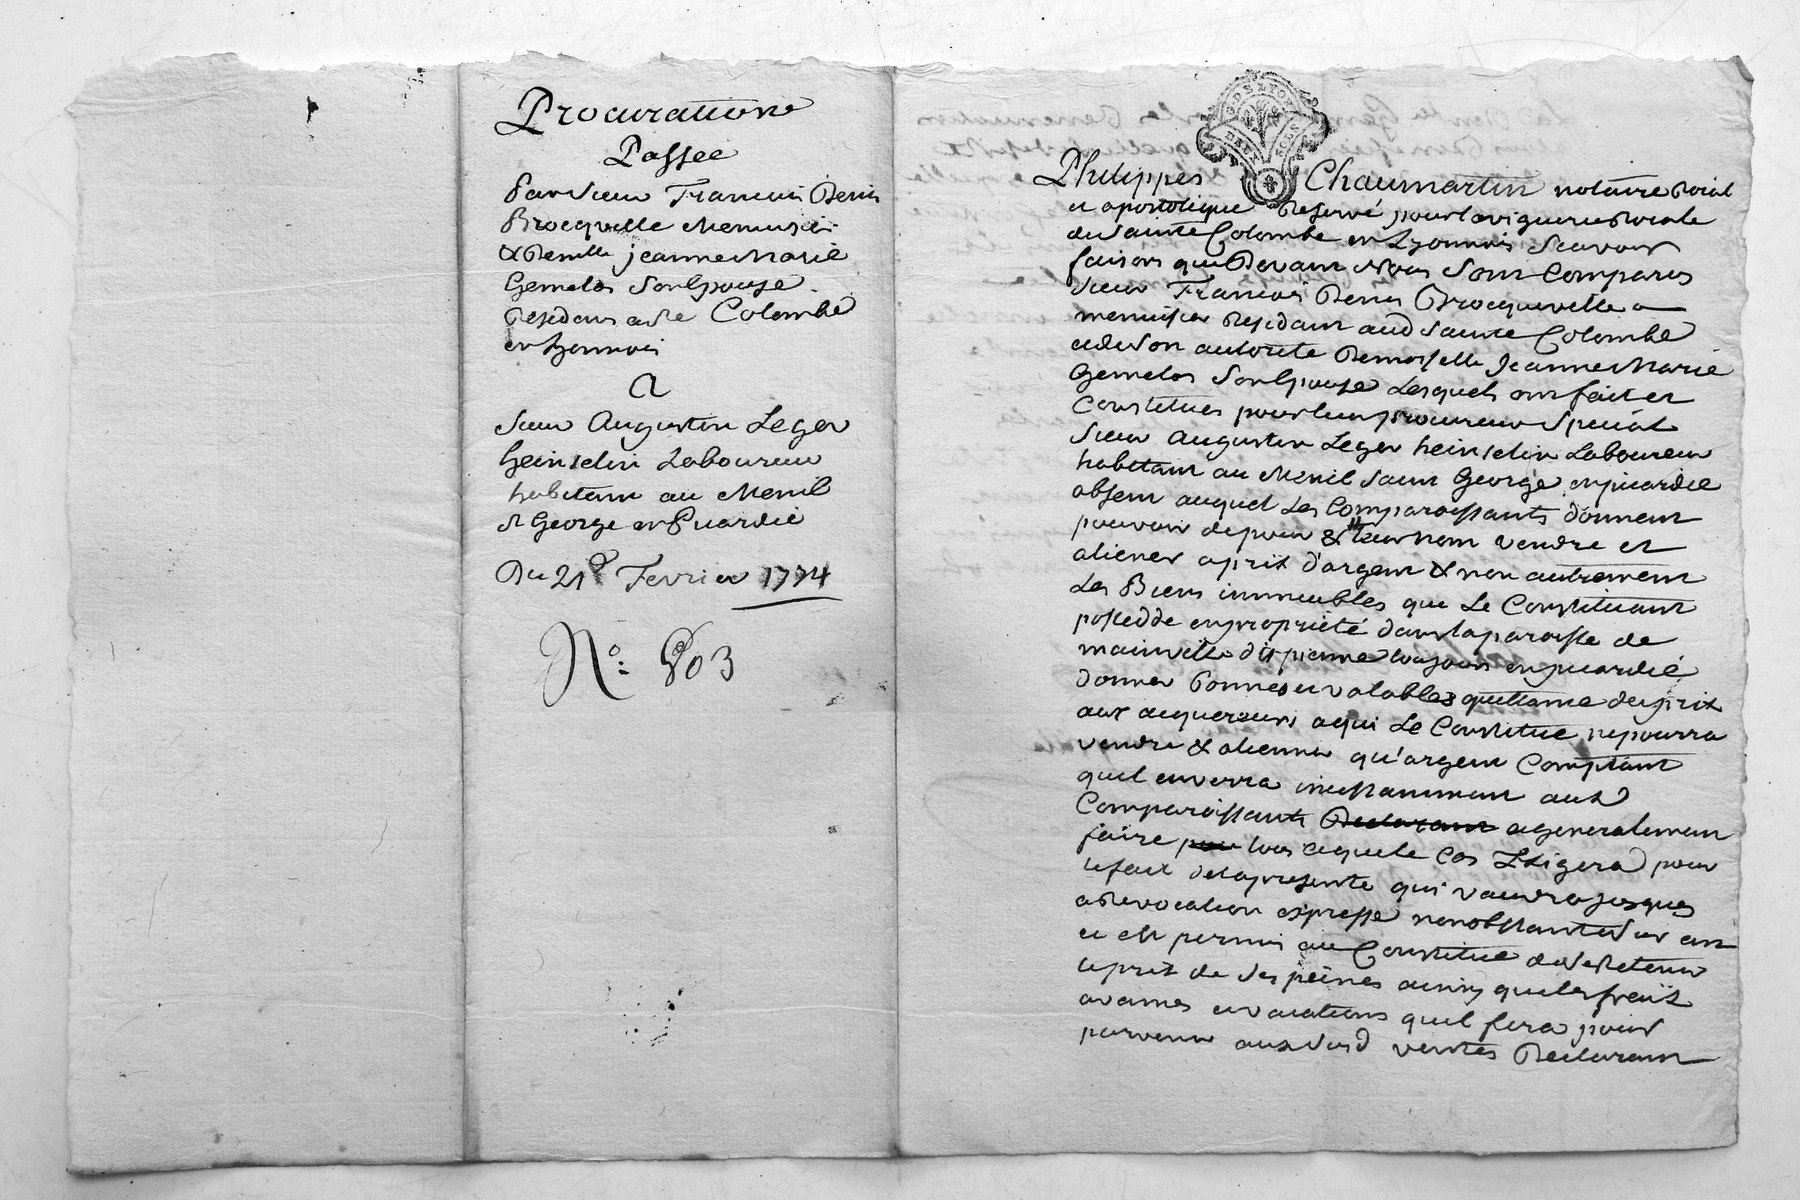 Procuration
Passee
par sieur Francois Denis
Brocqueville Menusier
& Demlle jeanne Marie
Gemelas son Epouse
residens a Ste Colombe
en Lyonnois
A
sieur Augustin Leger
heinselin Laboureur
habitant au Menil
st George en Picardie
Du 21e Fevrier 1774
No: 803
G. DE LYON
DEUX SOLS
Philippes Chaumartin notaire roial
et apostolique reservé pour la viguerie roiale
de sainte Colombe en Lyonnois scavoir
faisons que devant Nous sont comparus
sieur Francois Denis Brocqueville
menusier residant aud sainte Colombe
et de son autorite Demoiselle Jeanne Marie
Gemelas son Epouse Lesquels ont fait et
Constitues pour leur procureur special
sieur augustin Leger heinselin Laboureur
habitant au Menil saint George en picardie
absent auquel Les Comparoissants donnent
pouvoir de pour & leur nom vendre et
aliener a prix d'argent & non autrement
Les Biens immeubles que Le Constituant
possedde en propriété dans la paroisse de
mainville toujours en picardie
donner bonnes et valables quittance du prix
aux acquereurs a qui Le Constitue ne pourra
vendre & alienner qu'argent Comptant
quil enverra incessamment aux
Comparoissants Declarant & generalement
faire pour tous ce que le cas Exigera pour
le fait de la presente qui vaudra jusques
a revocation expresse nonobstante sur an
et est permis au Constitue de se retenir
le prix de ses peines ainsy que les fraix
avances et vacations quil fera pour
parvenir aux susd ventes Declarant